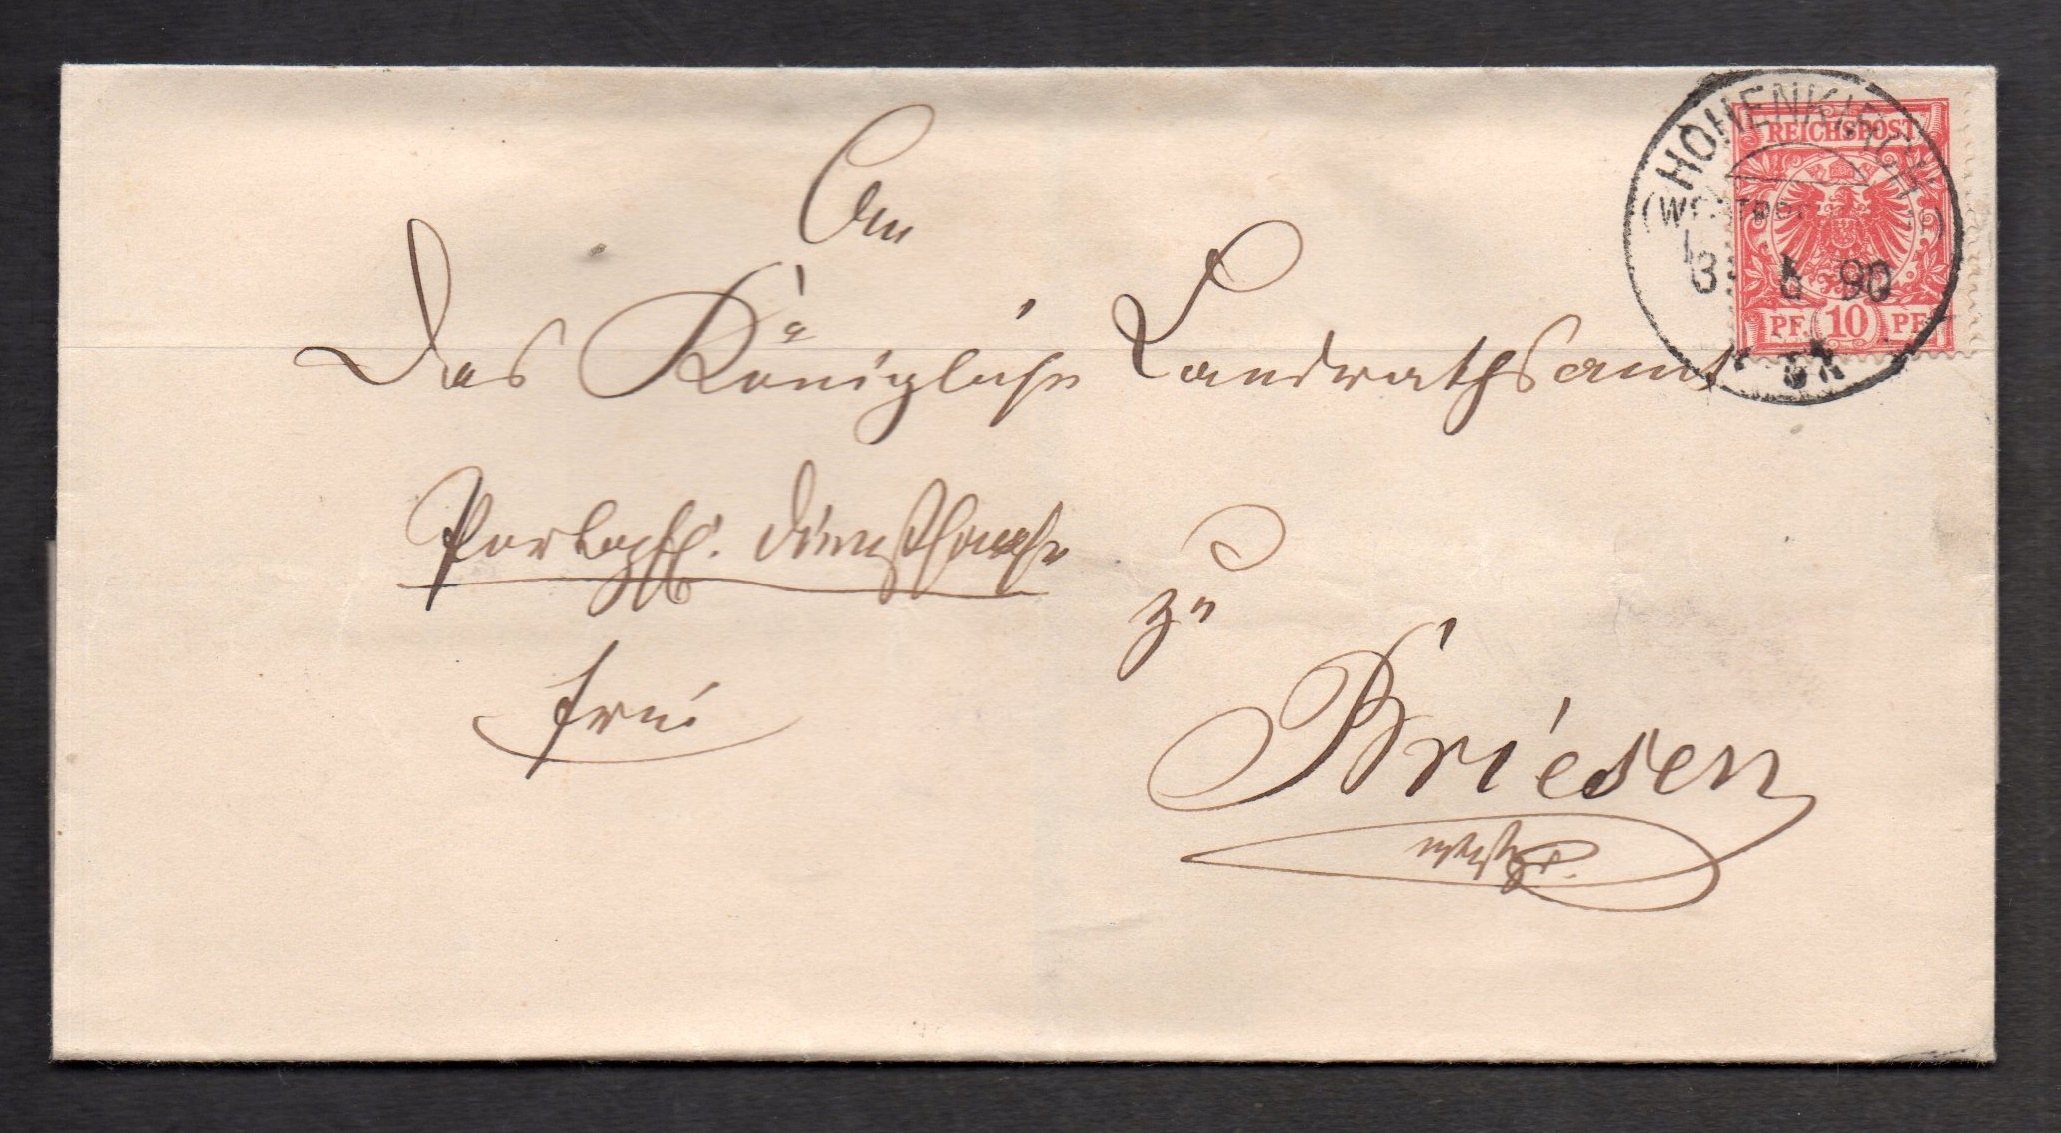 An
Das Königliche Landrathsamt
Portopfl. Dienstsache
frei
zu
Briesen
Westpr.
HOHENKIRCH
REICHSPOST
90
PF. 10 PF.